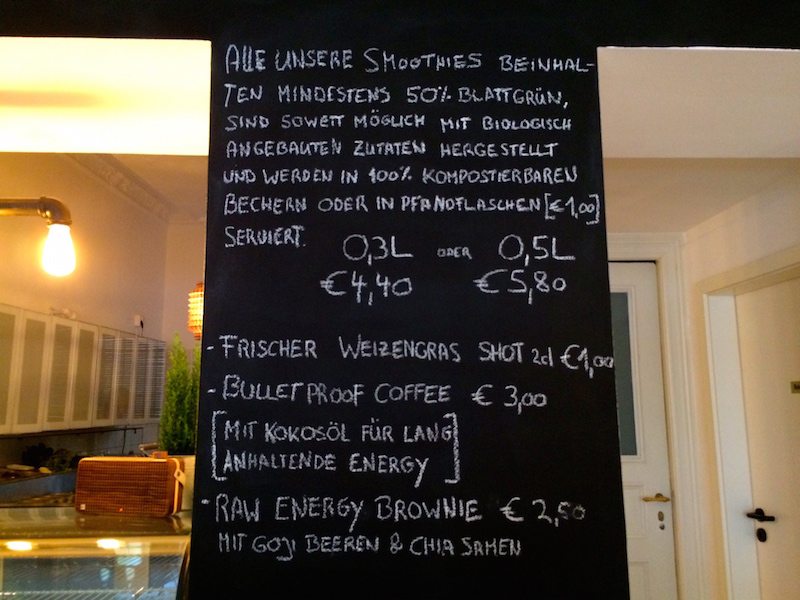 ALLE UNSERE SMOOTHIES BEINHAL-
TEN MINDESTENS 50% BLATTGRÜN,
SIND SOWEIT MÖGLICH MIT BIOLOGISCH
ANGEBAUTEN ZUTATEN HERGESTELLT
UND WERDEN IN 100% KOMPOSTIERBAREN
BECHERN ODER IN PFANDFLASCHEN [€1,00]
SERVIERT. 0,3L ODER 0,5L
€4,40 €5,80
- FRISCHER WEIZENGRAS SHOT 2cl €1,00
- BULLETPROOF COFFEE € 3,00
[MIT KOKOSÖL FÜR LANG
ANHALTENDE ENERGY]
- RAW ENERGY BROWNIE € 2,50
MIT GOJI BEEREN & CHIA SAMEN